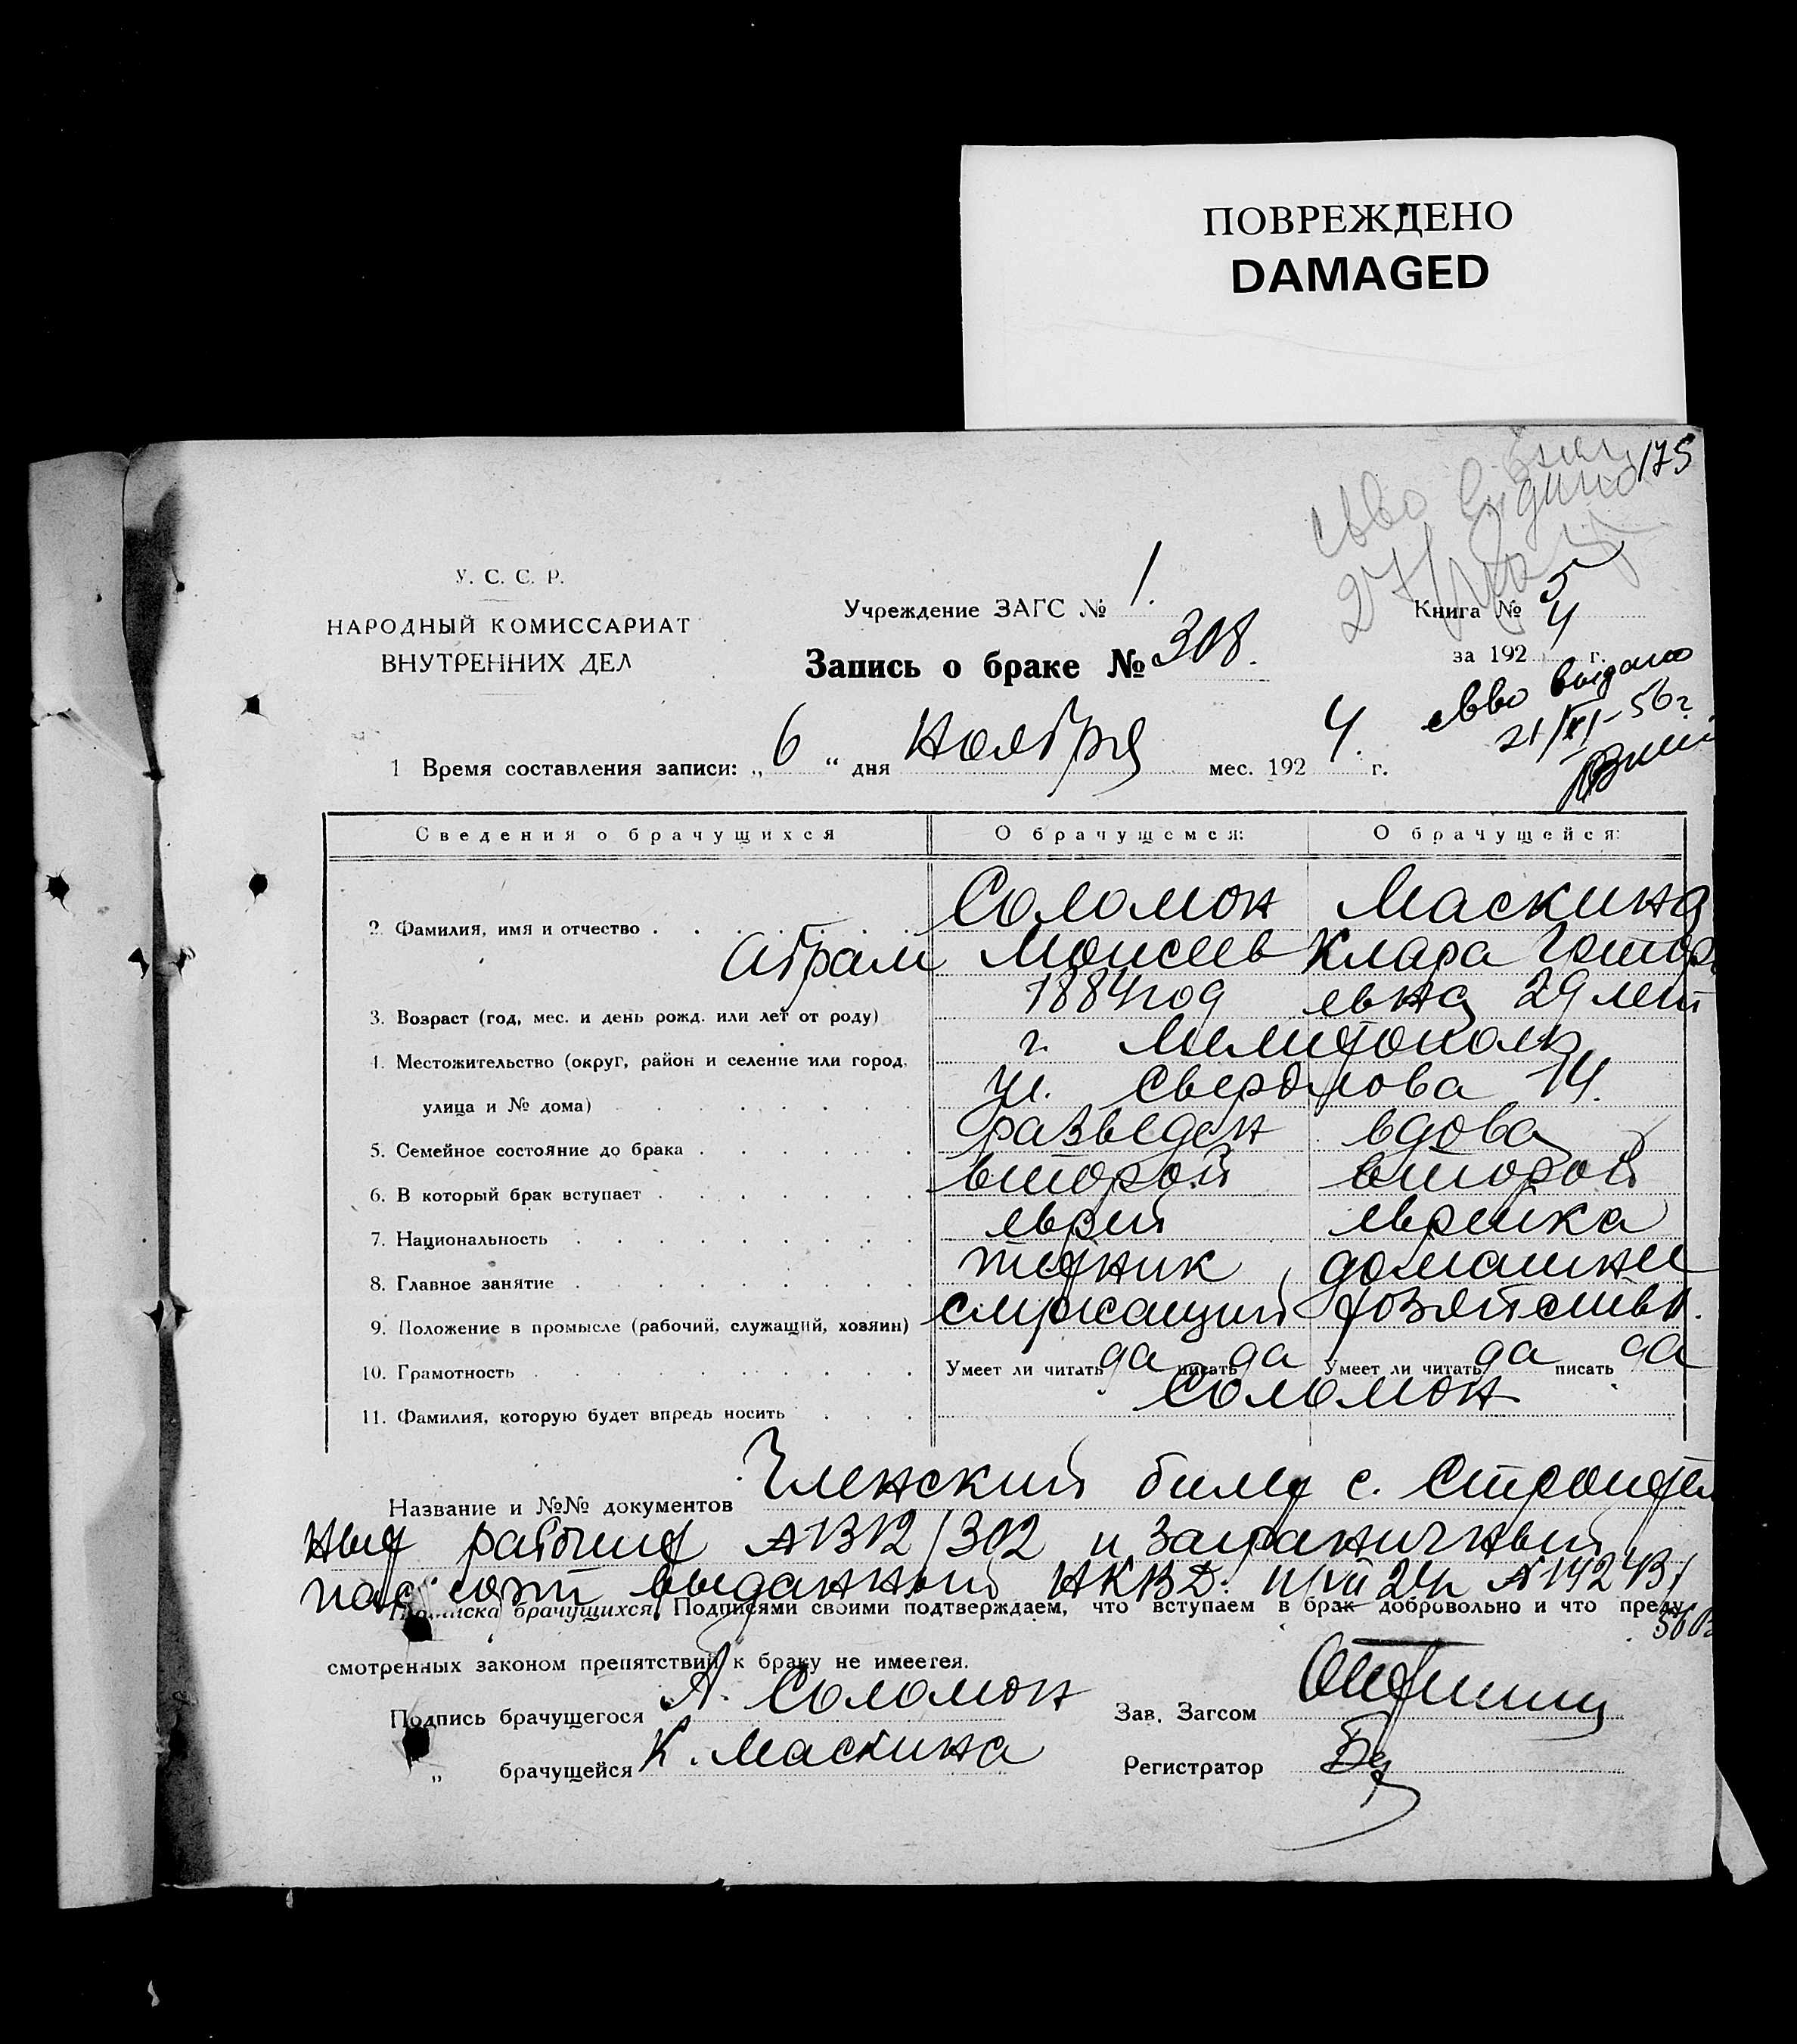 ПОВРЕЖДЕНО
DAMAGED
175
свво выдано
У. С. С. Р.
НАРОДНЫЙ КОМИССАРИАТ
ВНУТРЕННИХ ДЕЛ
Учреждение ЗАГС № 1.
Книга № 5
Запись о браке № 308.
за 192 4 г.
свво выдано
21/XI-56 г
1 Время составления записи: „ 6 “ дня Ноября мес. 192 4. г.
Сведения о брачущихся О брачущемся: О брачущейся:
Соломон Маскина
2. Фамилия, имя и отчество
Абрам Моисеев Клара Григор
3. Возраст (год, мес. и день рожд. или лет от роду) 1884 год евна 29 лет
4. Местожительство (округ, район и селение или город, г. Мелитополь
улица и № дома) ул. Свердлова 14.
5. Семейное состояние до брака разведен вдова
6. В который брак вступает второй второй
7. Национальность еврей еврейка
8. Главное занятие техник домашнее
9. Положение в промысле (рабочий, служащий, хозяин) служащий хозяйство.
10. Грамотность Умеет ли читать да писать да Умеет ли читать да писать да
11. Фамилия, которую будет впредь носить Соломон
Название и №№ документов Членский билет с. Строител
ных рабочих №1312/302 и Заграничный
паспорт выданный НКВД.
Подписка брачущихся. Подписями своими подтверждаем, что вступаем в брак добровольно и что преду
смотренных законом препятствий к браку не имеется.
Подпись брачущегося А. Соломон Зав. Загсом
„ брачущейся К. Маскина Регистратор